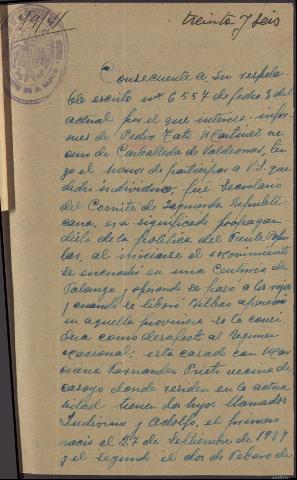 9/9/41
treinta y seis
Consecuente a su respeta-
ble escrito nº 6557 de fecha 3 del
actual por el que interesa infor-
mes de Pedro Martinez ve-
cino de Carballeda de Valdeorras, ten-
go el honor de participar a V.S. que
dicho individuo, fué Secretario
del Comite de Izquierda Republi-
cana, era significado propagan-
dista de la politica del Frente Popu-
lar, al iniciarse el movimiento
se encuadró en una Centuria de
Falange y operando se pasó a los rojos
y cuando se liberó Bilbao apareció
en aquella provincia se lo consi-
dera como desafecto al Regimen
Nacional; esta casado con Mar-
iana Fernandez Prieto vecina de
Casayo donde residen en la actua-
lidad tienen dos hijos llamados
y Adolfo, el primero
nació el 27 de Septiembre de 1937
y el segundo el dos de Febrero de